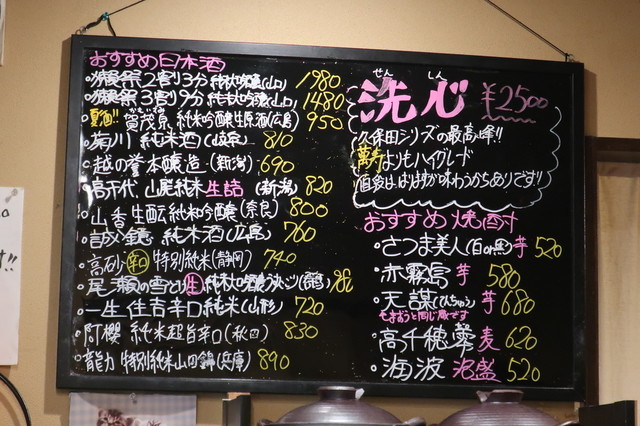 おすすめ日本酒
獺祭2割3分 純米大吟醸(山口) 1980
獺祭3割9分 純米大吟醸(山口) 1480
夏酒!! 賀茂泉 純米吟醸生原酒(広島) 950
菊川 純米酒(岐阜) 810
越の誉 本醸造(新潟) 690
高千代 山廃純米 生詰 (新潟) 820
山香 生酛純米吟醸(奈良) 800
誠鏡 純米酒(広島) 760
高砂 辛口 特別純米(静岡) 740
尾瀬の雪どけ 生 純米大吟醸
一生住吉辛口純米(山形) 720
阿櫻 純米超旨辛口(秋田) 830
龍力 特別純米山田錦(兵庫) 890
せん しん
洗心 ¥2500
久保田シリーズの最高峰!!
萬寿よりもハイグレード
おすすめ焼酎
さつま美人(白or黒) 芋 520
赤霧島 芋 580
天謀(ひちゅう) 芋 680
高千穂 麦 620
海波 泡盛 520